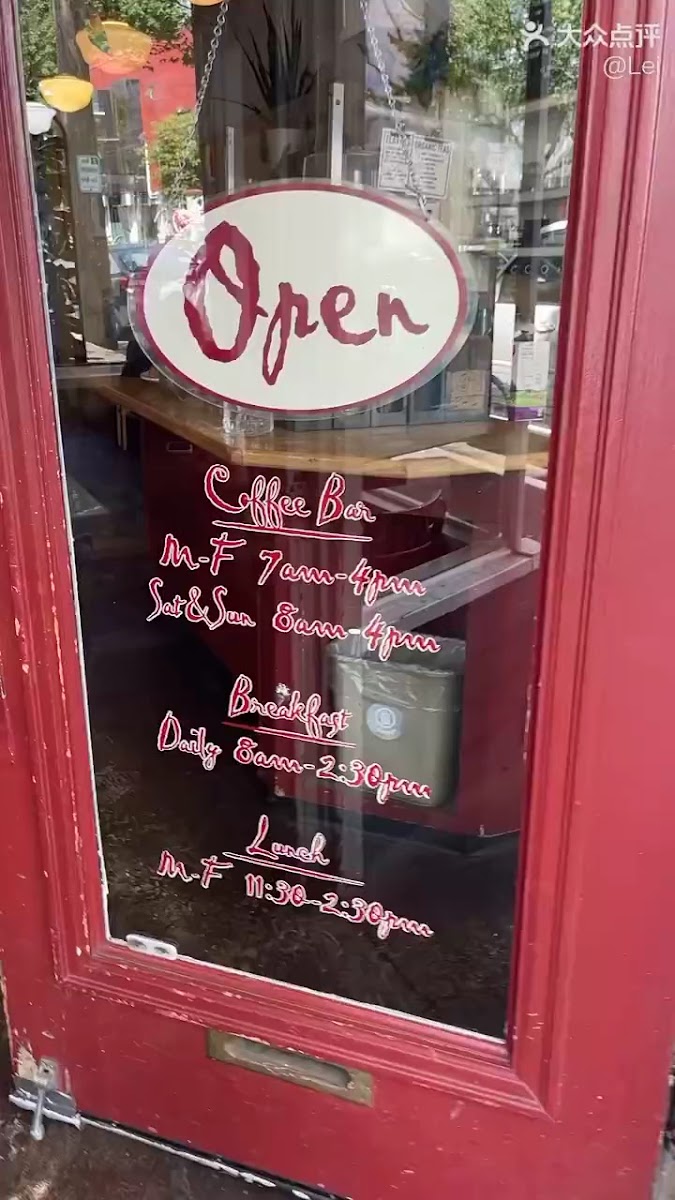 大众点评
@Lei
Open
Coffee Bar
M-F 7am-4pm
Sat&Sun 8am-4pm
Breakfast
Daily 8am-2:30pm
Lunch
M-F 11:30-2:30pm